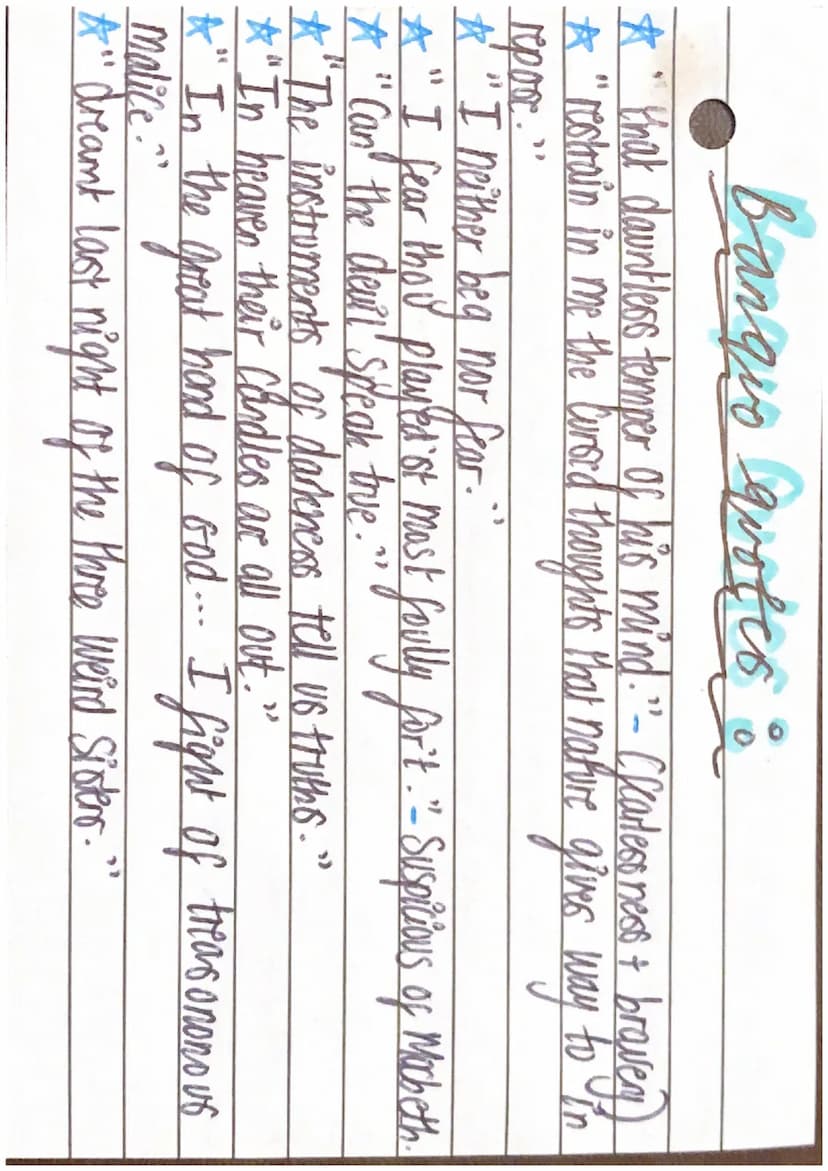 Banquo quotes :
☆ "that dauntless temper of his mind." - (fearlessness + bravery)
☆ "restrain in me the cursed thoughts that nature gives way to in
repose."
☆ "I neither beg nor fear."
☆ "I fear thou played'st most foully for't." - Suspicious of Macbeth.
☆ "Can the devil speak true."
☆ "The instruments of darkness tell us truths."
☆ "In heaven their candles are all out."
☆ "In the great hand of God... I fight of treasonous
malice."
☆ "dreamt last night of the three weird sisters."